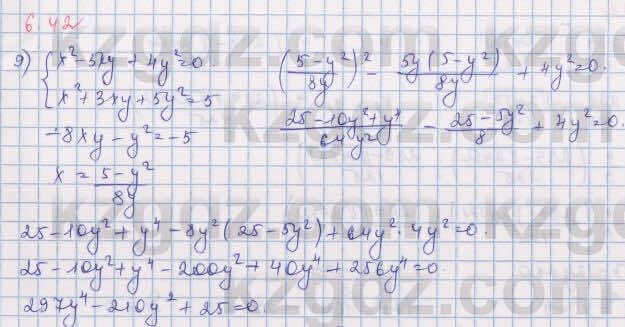 6 42
9) { x² - 5xy + 4y² = 0.
x² + 3xy + 5y² = 5
-8xy - y² = -5
x = (5 - y²)/(8y)
((5 - y²)/(8y))² - (5y(5 - y²))/(8y) + 4y² = 0.
(25 - 10y² + y⁴)/(64y²) - (25 - 5y²)/8 + 4y² = 0.
25 - 10y² + y⁴ - 8y²(25 - 5y²) + 64y² · 4y² = 0.
25 - 10y² + y⁴ - 200y² + 40y⁴ + 256y⁴ = 0.
297y⁴ - 210y² + 25 = 0.
kzgdz.com